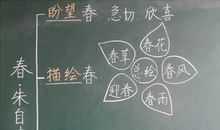 盼望春:急切.欣喜
春·朱自
描绘春
春花
春草
总绘
春风
迎春
春雨